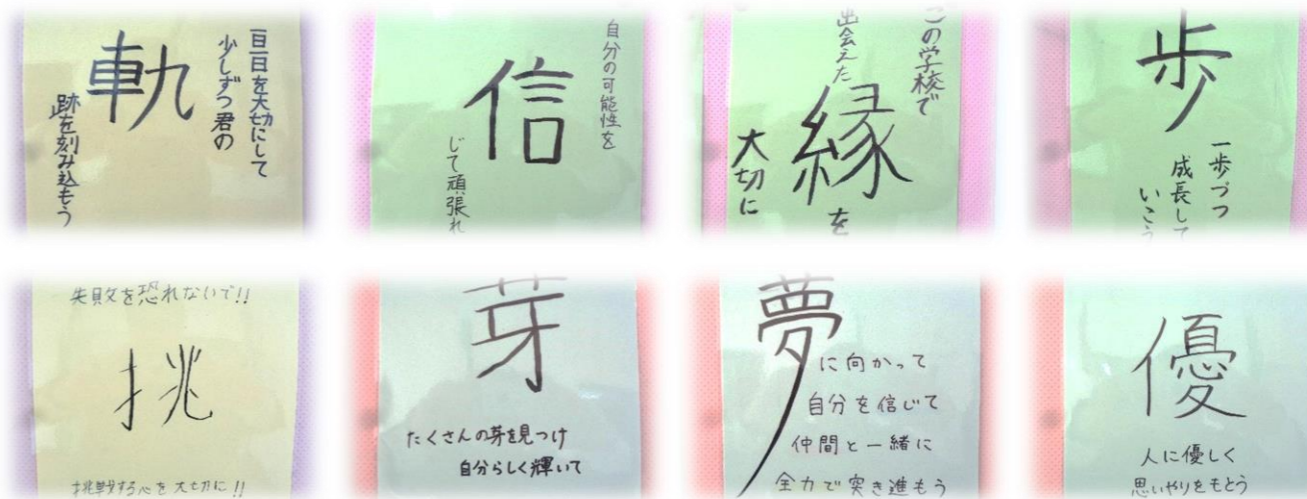 軌
一日一日を大切にして
少しずつ君の
跡を刻み込もう
自分の可能性を
信
じて頑張れ
この学校で
出会えた
縁を
大切に
歩
一歩づつ
成長して
いこう
失敗を恐れないで!!
挑
挑戦する心を大切に!!
芽
たくさんの芽を見つけ
自分らしく輝いて
夢に向かって
自分を信じて
仲間と一緒に
全力で突き進もう
優
人に優しく
思いやりをもとう